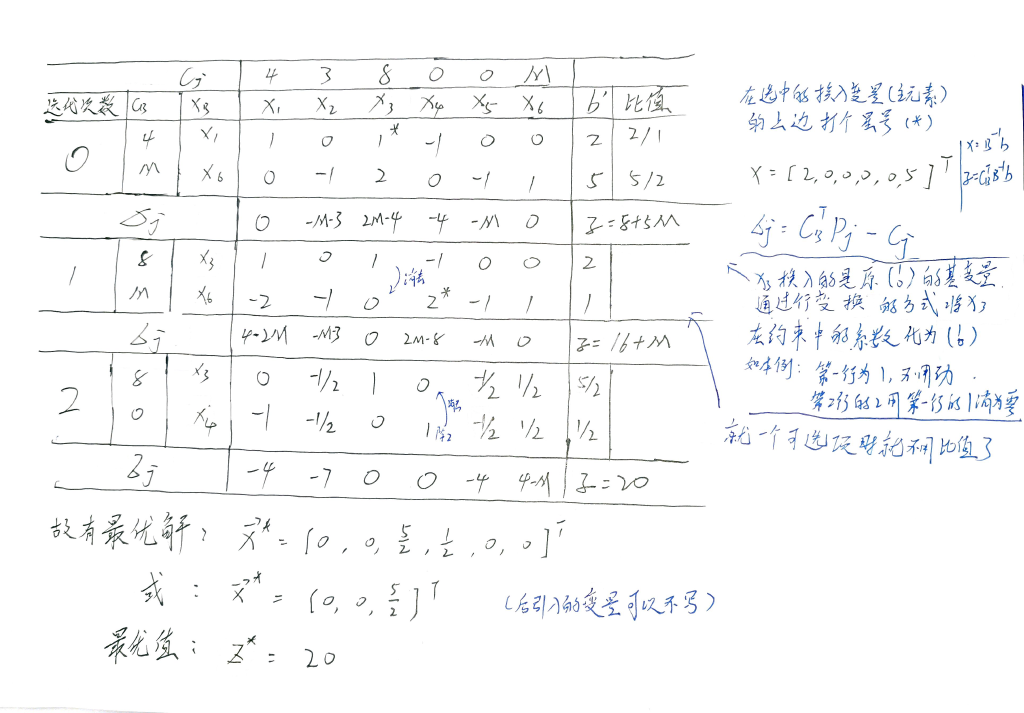 Cj 4 3 8 0 0 M
迭代次数 CB XB X₁ X₂ X₃ X₄ X₅ X₆ b' 比值
0 4 X₁ 1 0 1* -1 0 0 2 2/1
M X₆ 0 -1 2 0 -1 1 5 5/2
Δj 0 -M-3 2M-4 -4 -M 0 z=8+5M
1 8 X₃ 1 0 1 -1 0 0 2
消去
M X₆ -2 -1 0 2* -1 1 1
Δj 4-2M -M-3 0 2M-8 -M 0 z=16+M
2 8 X₃ 0 -1/2 1 0 -1/2 1/2 5/2
0 X₄ -1 -1/2 0 1 除2 -1/2 1/2 1/2
Δj -4 -7 0 0 -4 4-M z=20
故有最优解: X* = [0, 0, 5/2, 1/2, 0, 0]ᵀ
或: X* = [0, 0, 5/2]ᵀ
(后引入的变量可以不写)
最优值: Z* = 20
在选中的换入变量(主元素)
的上边打个星号(*)
X=[2,0,0,0,0,5]ᵀ
X=B⁻¹b
z=CBᵀB⁻¹b
Δj = CBᵀPj - Cj
X₃换入的是原(¹₀)的基变量
通过行变换的方式将X₃
在约束中的系数化为(¹₀)
如本例: 第一行为1,不用动.
第2行的2用第一行的1消为零
就一个可选项时就不用比值了